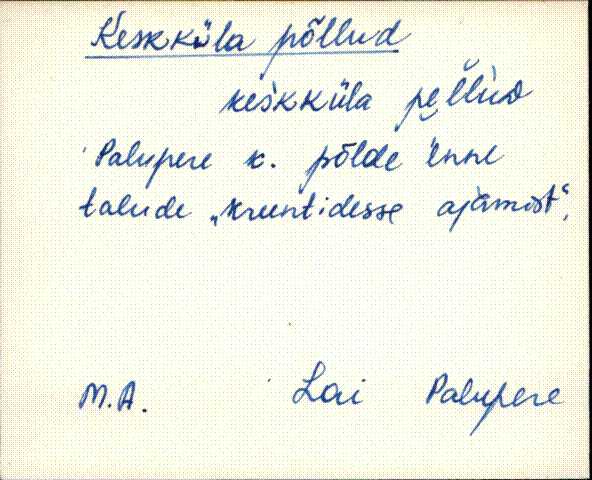 Keskküla põllud
keskküla pe̮l̆lùᴅ
Palupere k. põlde enne
talude „kruntidesse ajamist“.
M.A. Lai Palupere